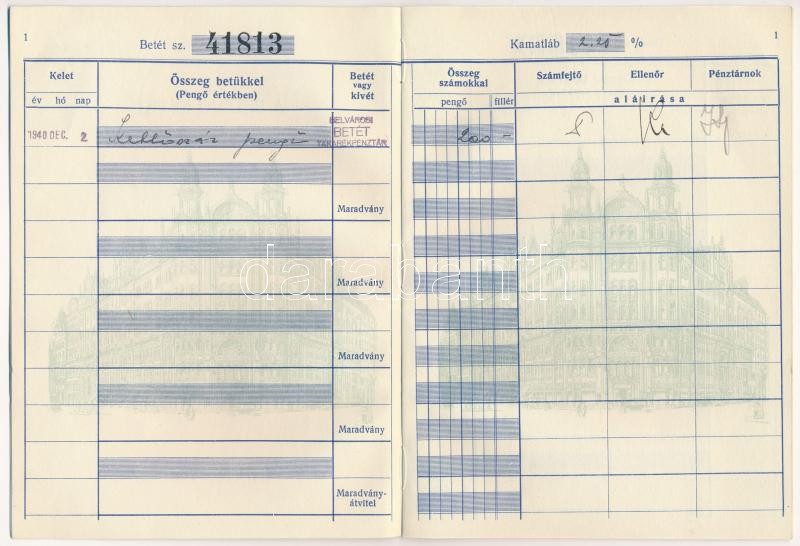 1
Betét sz. 41813
Kelet
év hó nap
Összeg betükkel
(Pengő értékben)
Betét
vagy
kivét
1940 DEC. 2
Kettőszáz pengő
BELVÁROSI
BETÉT
TAKARÉKPÉNZTÁR
Maradvány
Maradvány
Maradvány
Maradvány
Maradvány-
átvitel
Kamatláb 2.25 %
1
Összeg
számokkal
pengő fillér
Számfejtő
Ellenőr
Pénztárnok
aláirása
200 -
darabanth